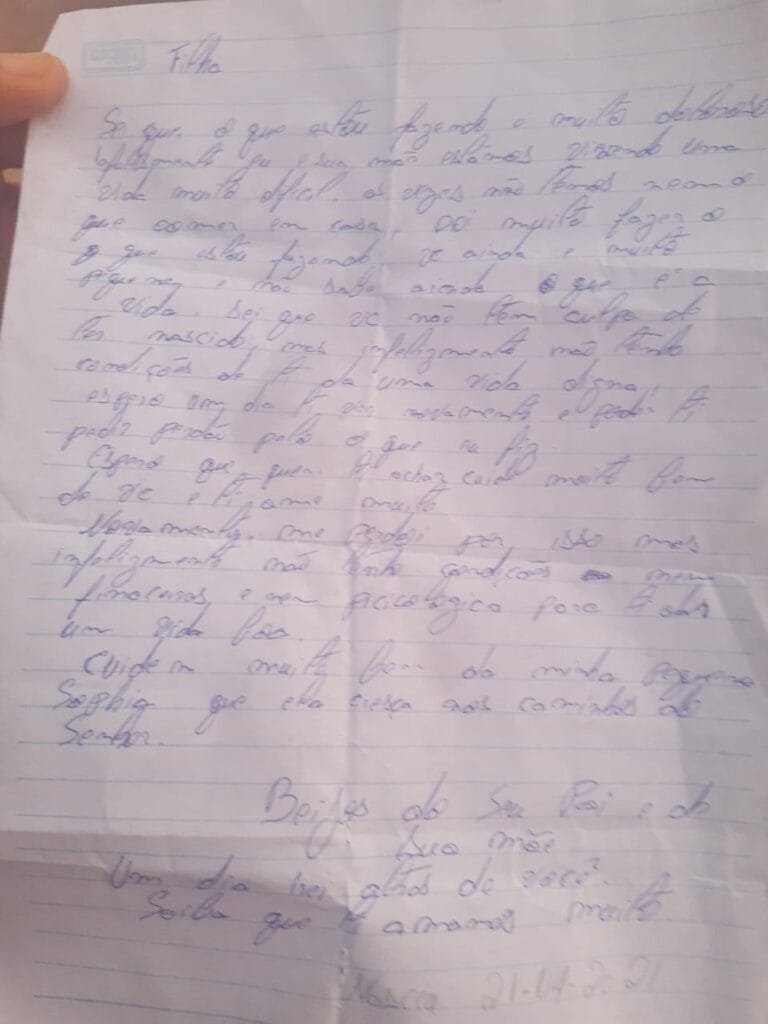 Filha
Sei que o que estou fazendo e muito doloroso
infelizment eu e sua mãe estamos vivendo uma
vida muito dificil. as vezes não temos nem o
que comer em casa, Doi muito fazer o
o que estou fazendo vc ainda e muito
pequena e não sabe ainda o que é a
vida. Sei que vc não têm culpa de
ter nascido, mas infelizmente não tenho
condições de ti da uma vida digna,
espero um dia ti ver novamente e poder ti
pedir perdão pelo o que eu fiz.
Espero que quem ti achar cuide muito bem
de vc e ti ame muito
Novamente, me perdoi por isso mas
infelizmente não tenho condições nem
financeiras, e nem picicológica para ti dar
um vida boa.
Cuidem muito bem da minha pequena
Sophia que ela cresça nos caminhos do
Senhor.
Beijos do Seu Pai e da
Sua mãe
Um dia irei atrás de você.
Saiba que ti amamos muito
21-07-2021